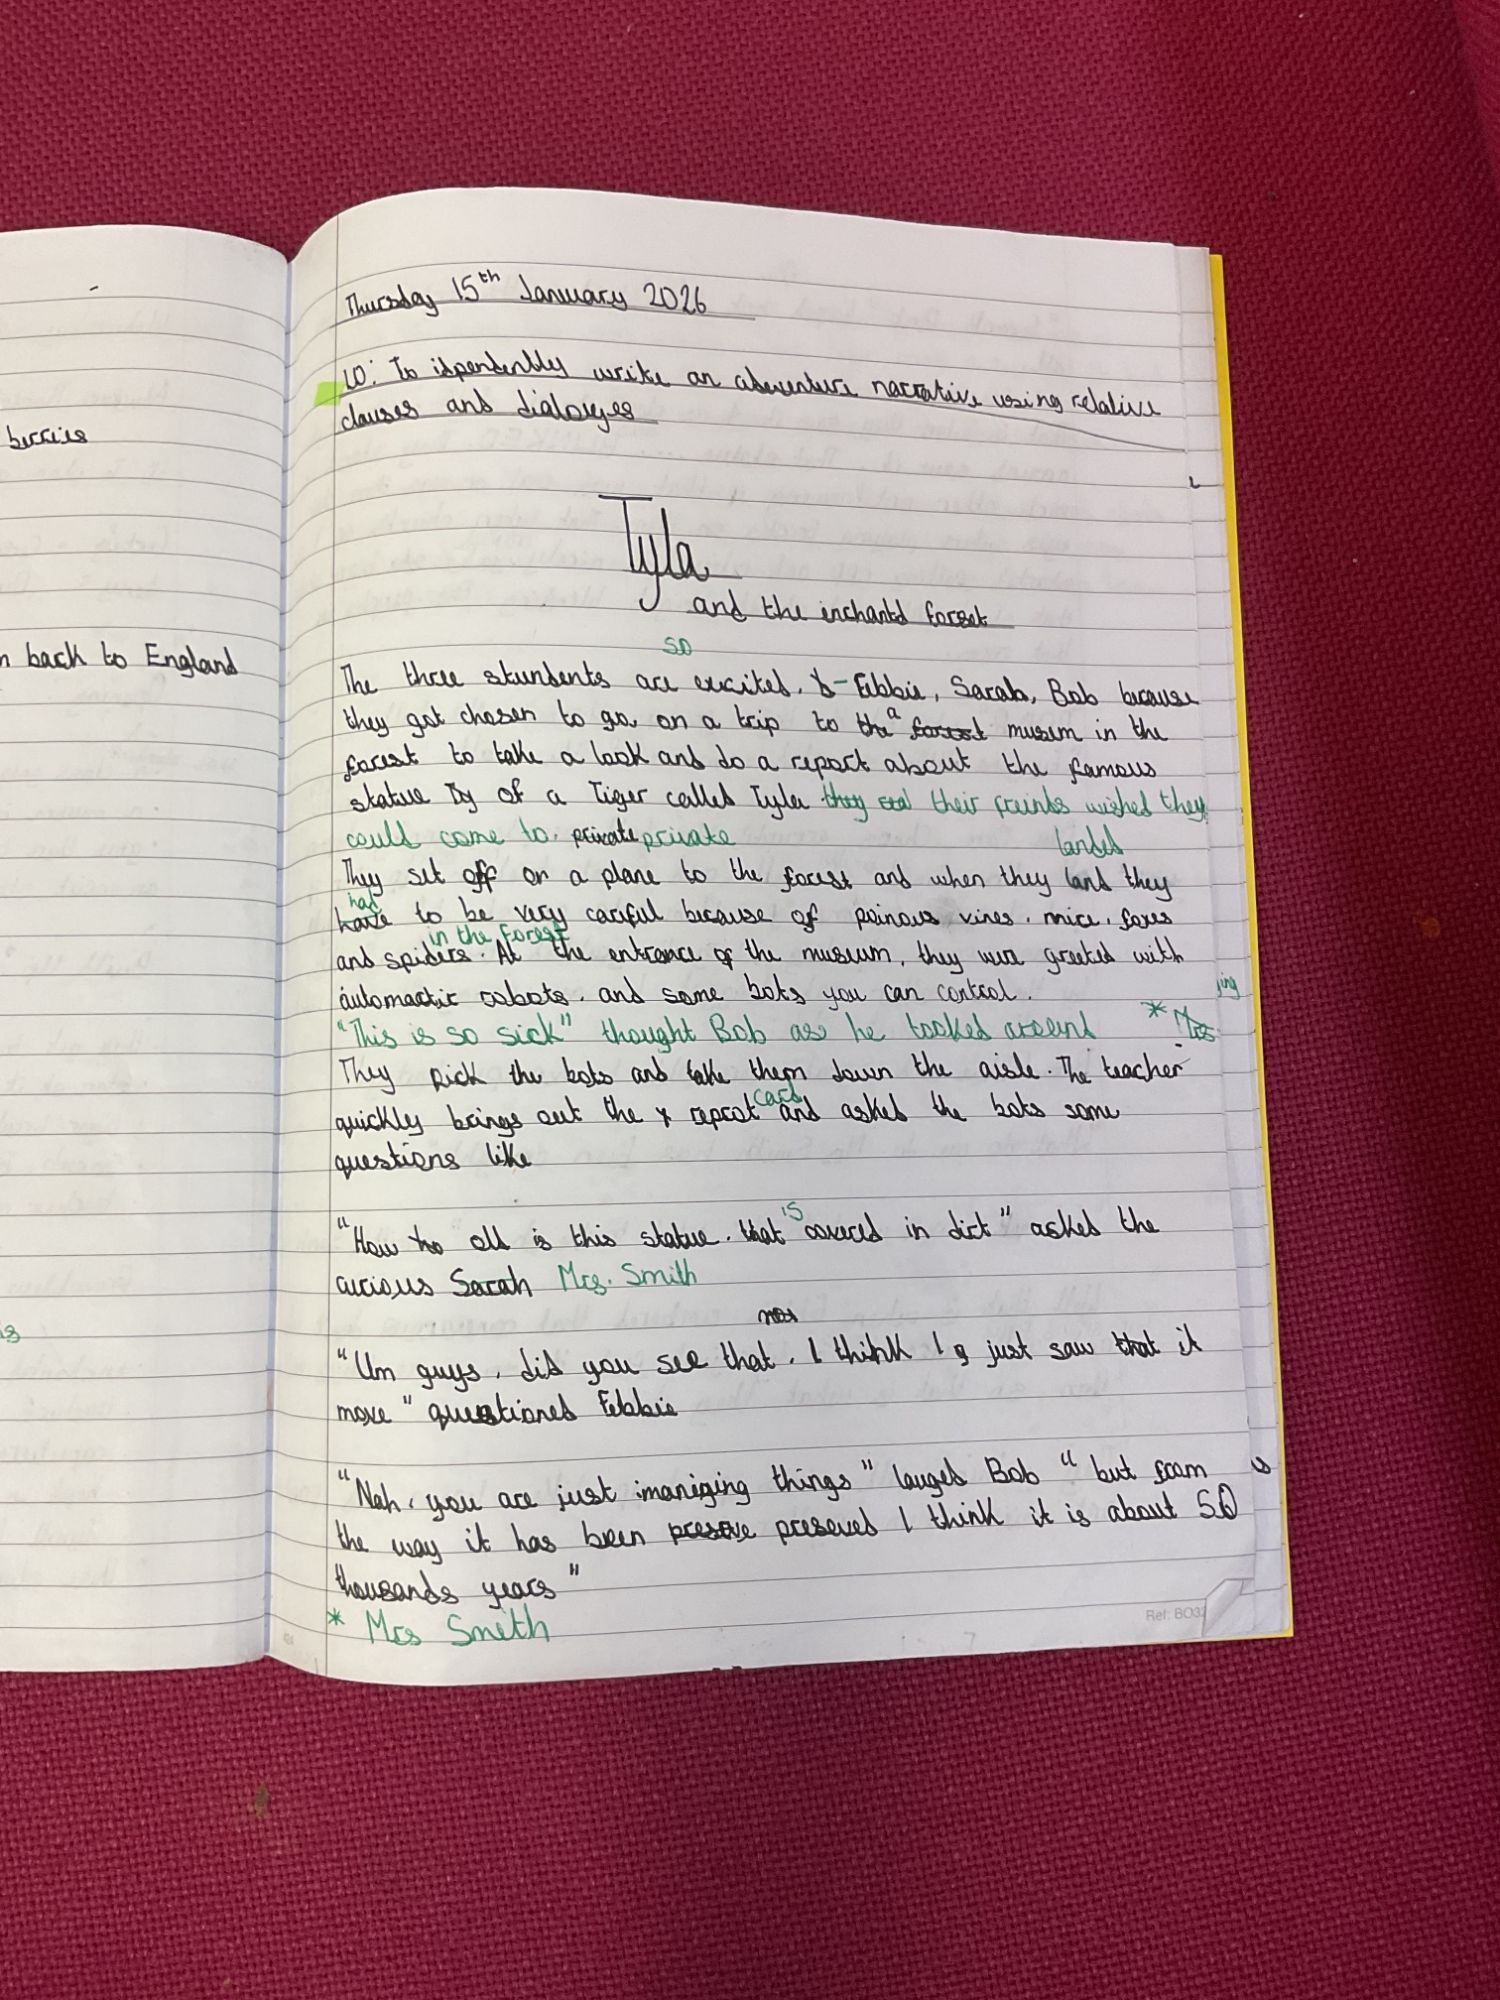 berries
n back to England
is
Thursday 15th January 2026
LO: To idpendentlly write an adventure narrative using relative
clauses and dialouges
Tyla
and the inchantd forest
so
The three stundents are excited. Ebbie, Sarah, Bob because
they got chosen to go on a trip to the a forest musum in the
forest to take a look and do a report about the famous
statue Ty of a Tiger called Tyla they their freinds wished they
could come to. private private
landed
They set off on a plane to the forest and when they land they
had
have to be very carful because of poinous vines, mice, foxes
in the forest
and spiders. At the entrance of the museum, they were greeted with
automactic robots. and some bots you can control.
ing
"This is so sick" thought Bob as he looked around * Mrs
They pick the bots and take them down the aisle. The teacher
card
quickly brings out the reprot and asked the bots some
questions like
is
"How old is this statue. that covered in dirt" asked the
curious Sarah Mrs. Smith
"Um guys, did you see that. I think I just saw that it
move" questioned Ebbie
"Nah, you are just imaniging things" lauged Bob "but from
the way it has been preserve preseved I think it is about 50
thousands years"
* Mrs Smith
Ref: BO32